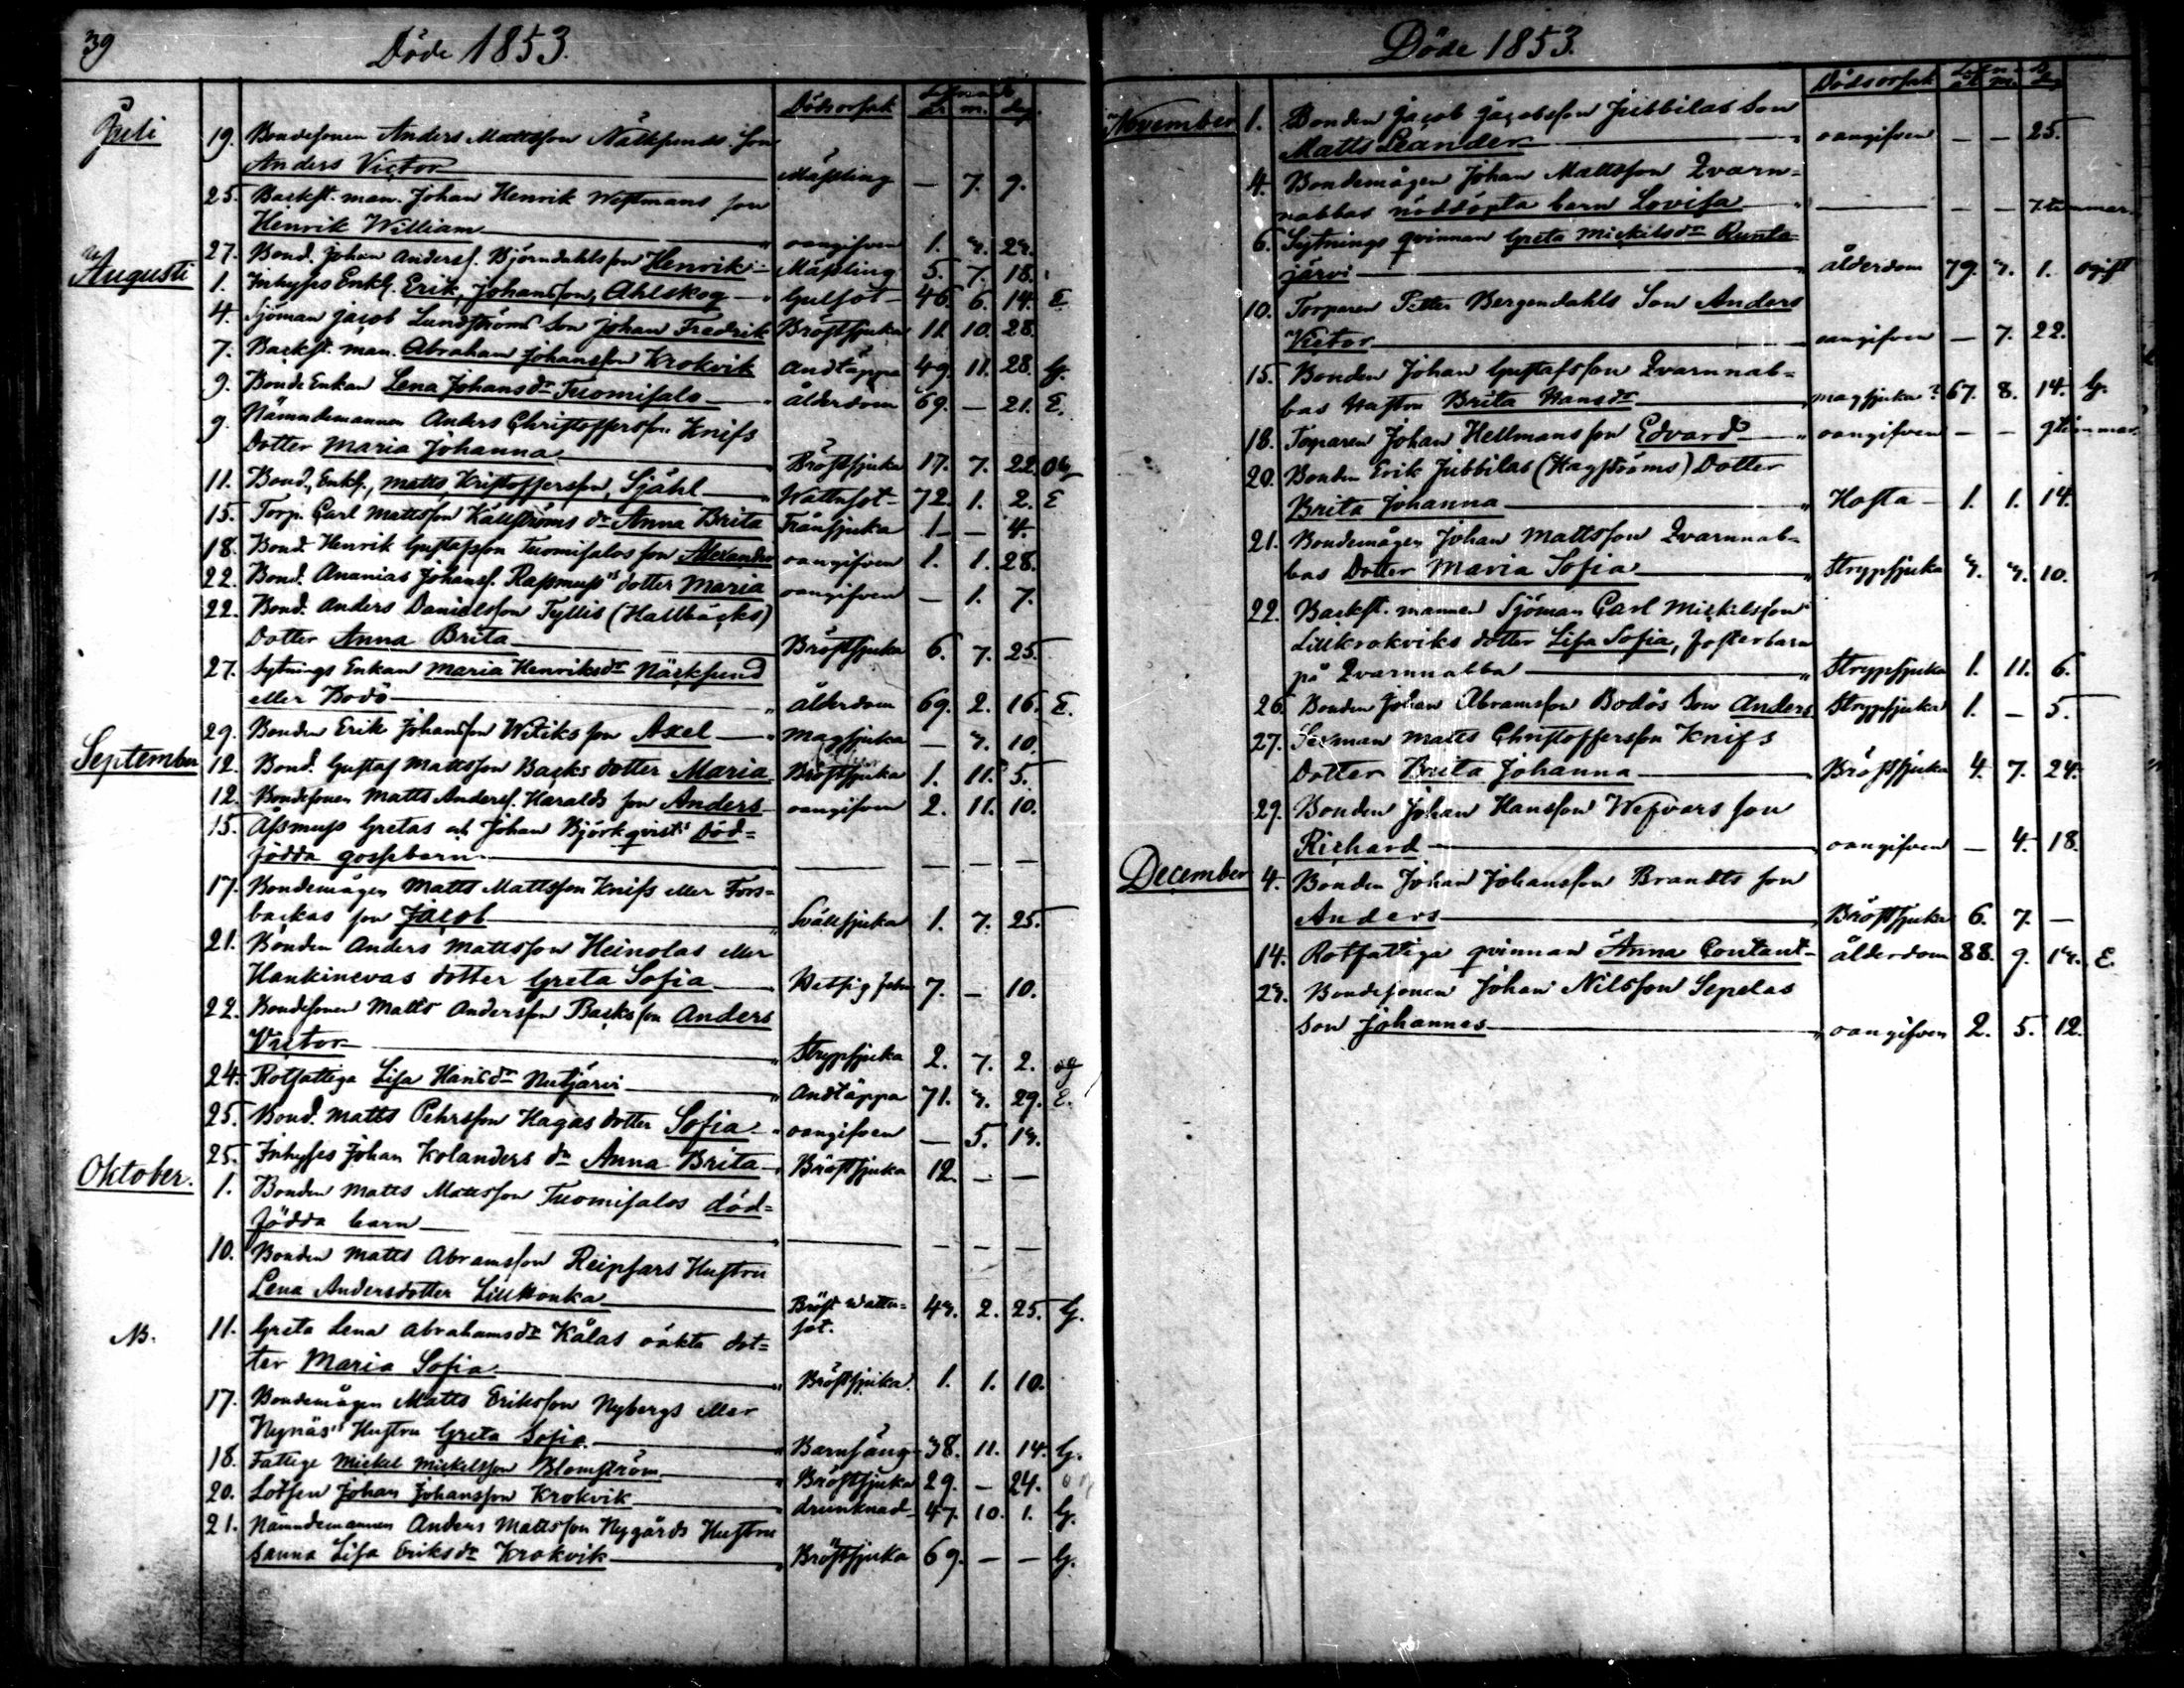 39
Döde 1853.
Dödsorsak år m. dag.
Juli
19. Bondesonen Anders Mattsson Näckfunds son
Anders Victor Mässling — 7. 9.
25. Backst. man. Johan Henrik Westmans son
Henrik William oangifven 1. 3. 23.
27. Bond. Johan Anderss. Björndahls son Henrik Mässling 5. 7. 18.
Augusti
1. Inhyses Enkl. Erik Johansson Ahlskog Gulsot 46. 6. 14. E.
4. Sjöman Jacob Lundströms Son Johan Fredrik Bröstsjuka 11. 10. 28.
7. Backst. man. Abraham Johansson Krokvik Andtäppa 49. 11. 28. G.
9. Bonde Enkan Lena Johansdr Tuomisalo ålderdom 69. — 21. E.
9. Nämndemannen Anders Christoffersson Knifs
Dotter Maria Johanna Bröstsjuka 17. 7. 22. OG
11. Bond. Enkl., Matts Kristoffersson, Sjähl Wattusot 72. 1. 2. E
15. Torp. Carl Mattsson Källströms dr Anna Brita Tränsjuka 1. — 4.
18. Bond. Henrik Gustafsson Tuomisalos son Alexander oangifven 1. 1. 28.
22. Bond. Ananias Johanss. Rasmus's dotter Maria oangifven — 1. 7.
22. Bond. Anders Danielsson Tyllis (Hallbäcks)
Dotter Anna Brita Bröstsjuka 6. 7. 25.
27. Sytnings Enkan Maria Henriksdr Näckfund
eller Bodö ålderdom 69. 2. 16. E.
29. Bonden Erik Johansson Witiks son Axel Magsjuka — 3. 10.
September
12. Bond. Gustaf Mattsson Backs dotter Maria Bröstsjuka 1. 11. 5.
12. Bondesonen Matts Anderss. Haralds son Anders oangifven 2. 11. 10.
15. Asmuss Gretas och Johan Björkqvists Död=
födda gossebarn — — — —
17. Bondemågen Matts Mattsson Knifs eller Fors=
backas son Jacob Svällsjuka 1. 7. 25.
21. Bonden Anders Mattsson Heinolas eller
Hankinevas dotter Greta Sofia Hetsig feber 7. — 10.
22. Bondesonen Matts Andersson Backs son Anders
Victor Strypsjuka 2. 7. 2. og
24. Rotfattiga Lisa Hansdr Nutjärvi Andtäppa 71. 3. 29. E.
25. Bond. Matts Pehrsson Hagas dotter Sofia oangifven — 5. 13.
25. Inhyses Johan Kolanders dr Anna Brita Bröstsjuka 12. — —
Oktober.
1. Bonden Matts Mattsson Tuomisalos död=
födda barn — — — —
10. Bonden Matts Abramsson Reipsars Hustru
Lena Andersdotter Lillkonka Bröst Wattu=
sot. 43. 2. 25. G.
NB. 11. Greta Lena Abrahamsdr Kålas oäkta dot=
ter Maria Sofia Bröstsjuka 1. 1. 10.
17. Bondemågen Matts Eriksson Nybergs eller
Nynäs's Hustru Greta Sofia Barnsäng 38. 11. 14. G.
18. Fattige Mickel Mickelsson Blomström Bröstsjuka 29. — 24.
20. Lotsen Johan Johansson Krokvik drunknad 47. 10. 1. G.
21. Nämndemannen Anders Mattsson Nygårds Hustru
Sanna Lisa Eriksdr Krokvik Bröstsjuka 69. — — G.
Döde 1853.
Dödsorsak
November
1. Bonden Jacob Jacobsson Jubbilas Son
Matts Leander oangifven — — 25.
4. Bondemågen Johan Mattsson Qvarn=
nabbas nöddöpta barn Lovisa — — — 7 timmar.
6. Sytnings qvinnan Greta Mickelsdr Runta=
järvi ålderdom 79. 3. 1. ogift
10. Torparen Petter Bergendahls Son Anders
Victor oangifven — 7. 22.
15. Bonden Johan Gustafsson Qvarnnab=
bas Hustru Brita Hansdr magsjuka? 67. 8. 14. G.
18. Torparen Johan Hellmans son Edvard oangifven — — 9 timmar.
20. Bonden Erik Jubbilas (Hagströms) Dotter
Brita Johanna Hosta 1. 1. 14.
21. Bondemågen Johan Mattsson Qvarnnab=
bas Dotter Maria Sofia Strypsjuka 3. 3. 10.
22. Backst. mannen Sjöman Carl Mickelsson
Lillkrokviks dotter Lisa Sofia, fosterbarn
på Qvarnnabba Strypsjuka 1. 11. 6.
26. Bonden Johan Abramsson Bodös Son Anders Strypsjuka 1. — 5.
27. Sexman Matts Christoffersson Knifs
Dotter Brita Johanna Bröstsjuka 4. 7. 24.
29. Bonden Johan Hansson Wefvars son
Richard oangifven — 4. 18.
December
4. Bonden Johan Johansson Brandts son
Anders Bröstsjuka 6. 7. —
14. Rotfattiga qvinnan Anna Contant ålderdom 88. 9. 13. E.
23. Bondesonen Johan Nilsson Sepelas
Son Johannes oangifven 2. 5. 12.